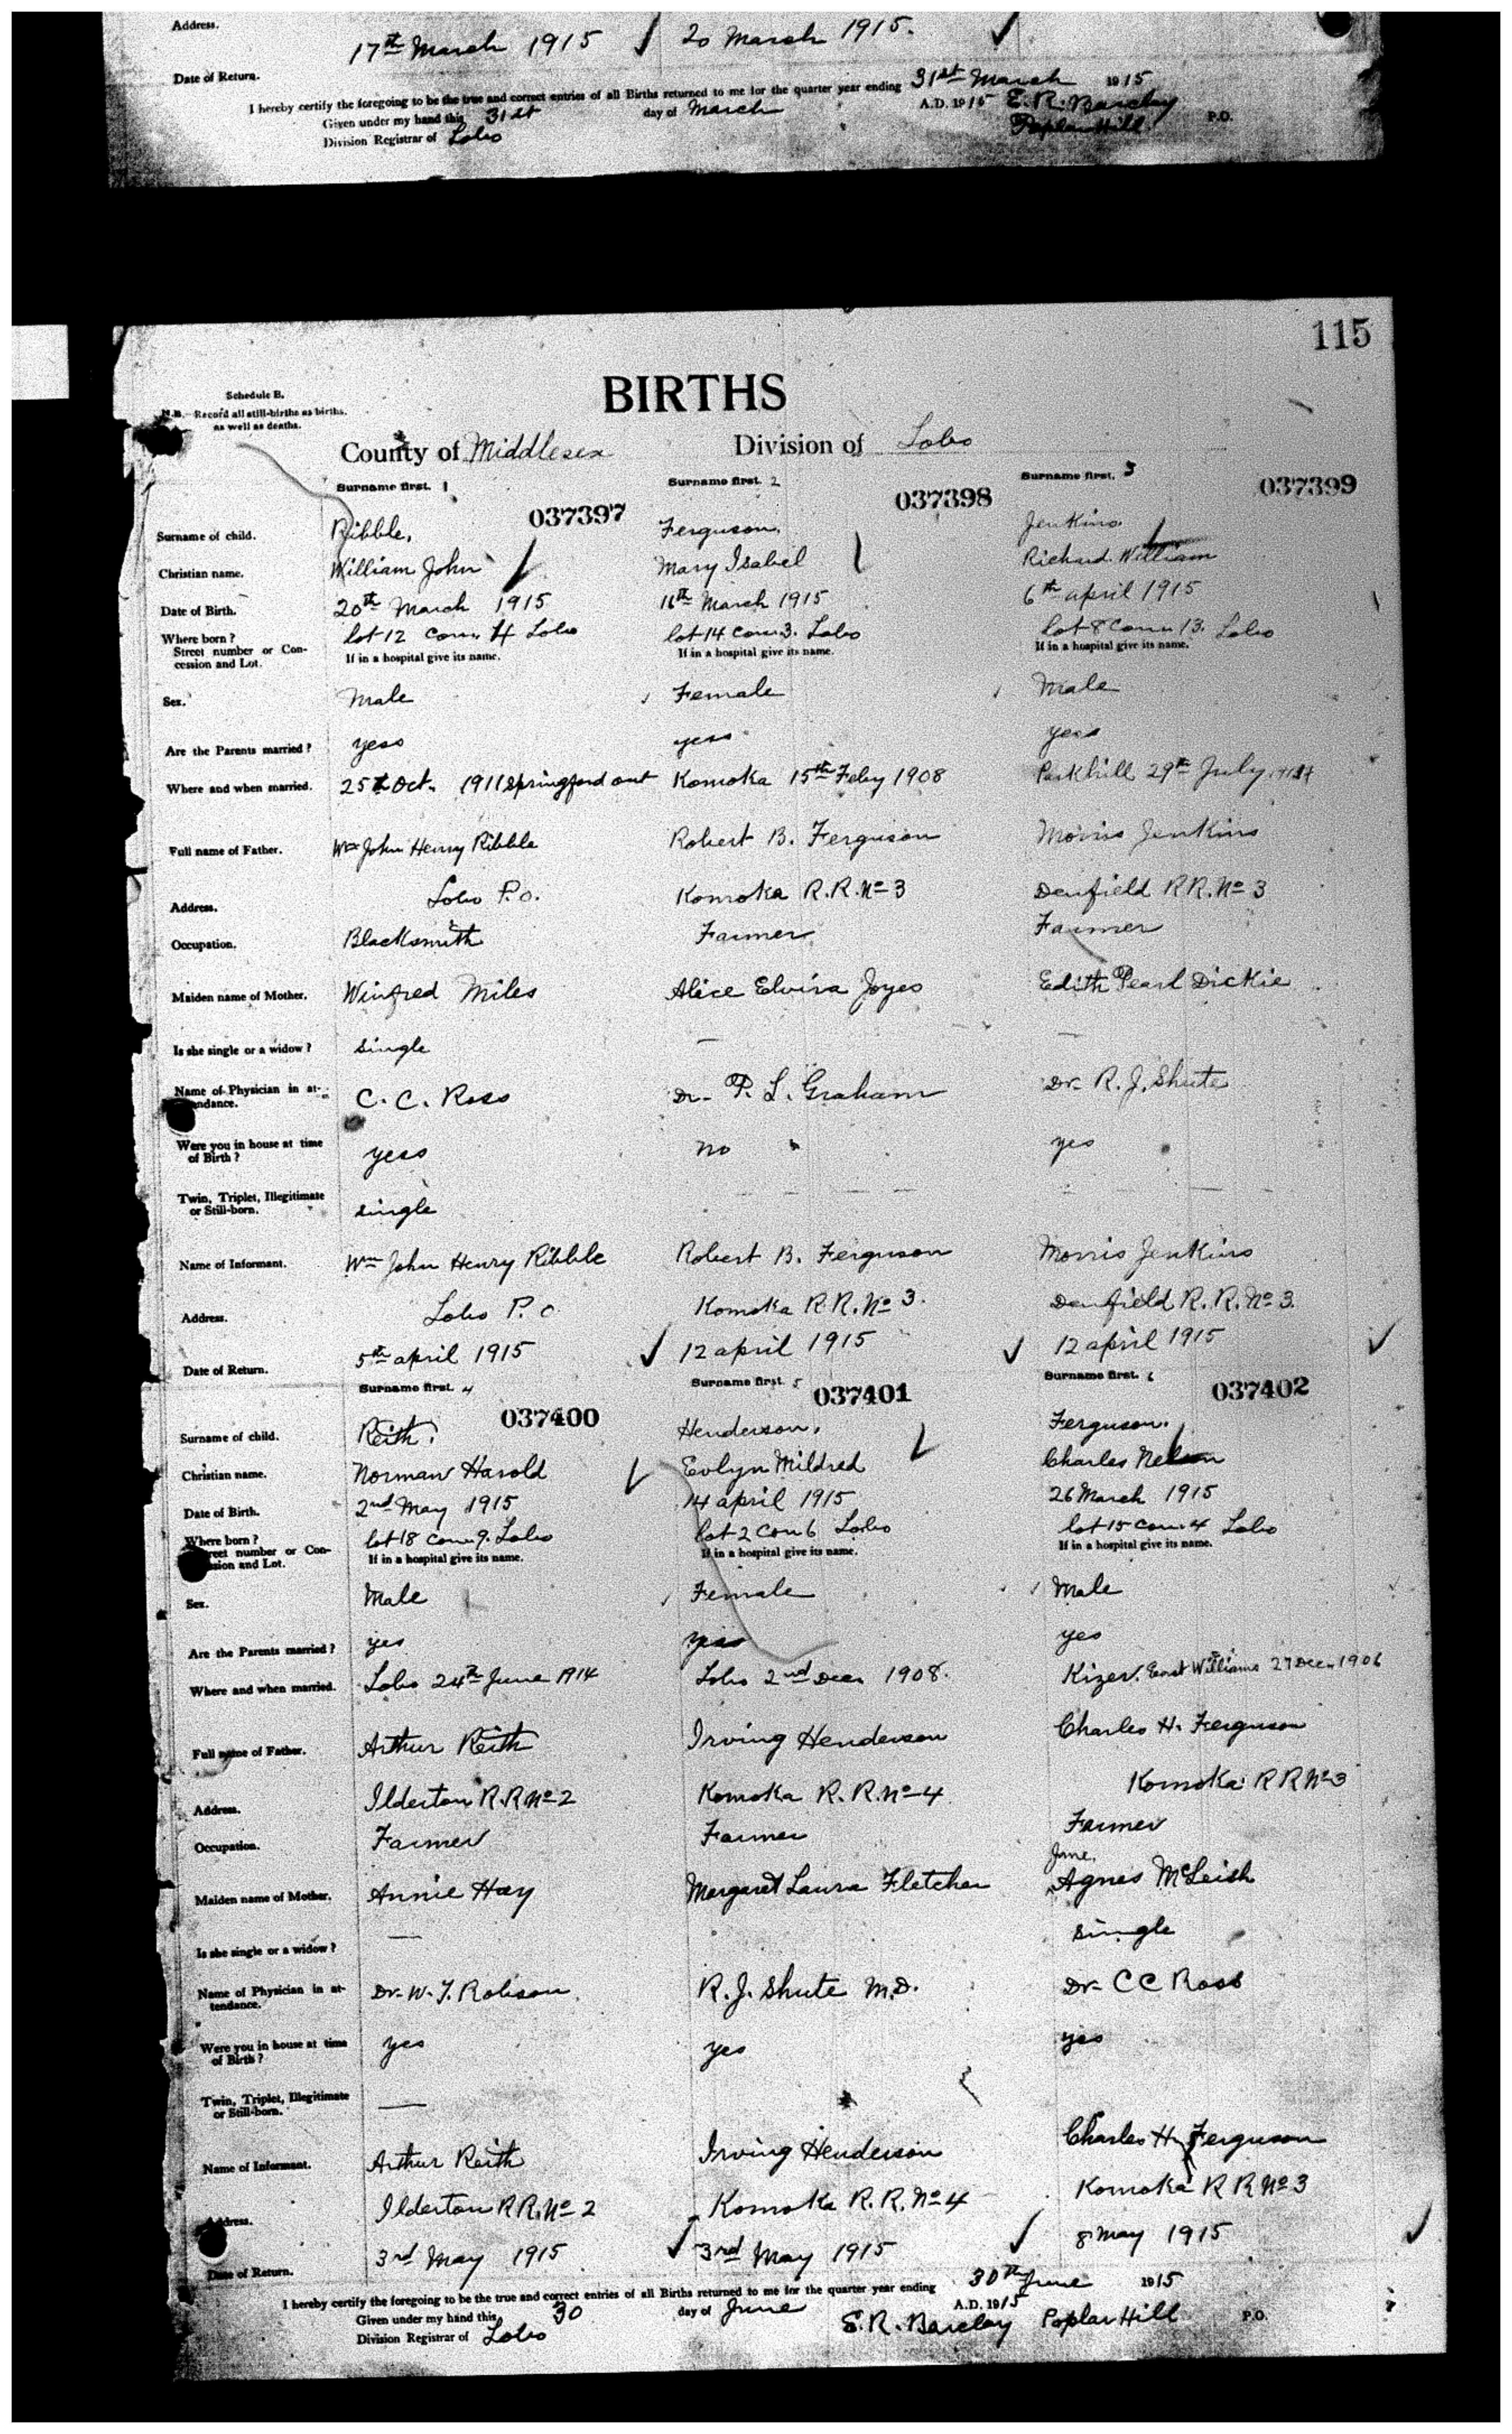 Address.
17th March 1915 20 March 1915.
Date of Return.
I hereby certify the foregoing to be the true and correct entries of all Births returned to me for the quarter year ending 31st March 1915
Given under my hand this 31st day of March A.D. 1915 E. R. Barclay
Division Registrar of Lobo Poplar Hill P.O.
115
Schedule B.
N.B. Record all still-births as births.
as well as deaths.
BIRTHS
County of Middlesex Division of Lobo
Surname first. 1 Surname first. 2 Surname first. 3
037397 037398 037399
Surname of child. Ribble, Ferguson, Jenkins.
Christian name. William John Mary Isabel Richard William
Date of Birth. 20th March 1915 16th March 1915 6th april 1915
Where born? lot 12 Con. 4 Lobo lot 14 Con. 3. Lobo Lot 8 Con. 13. Lobo
Street number or Con- If in a hospital give its name. If in a hospital give its name. If in a hospital give its name.
cession and Lot.
Sex. Male Female Male
Are the Parents married? yes yes yes
Where and when married. 25th Oct. 1911 Springford ont Komoka 15th Feby 1908 Parkhill 29th July
Full name of Father. Wm John Henry Ribble Robert B. Ferguson Morris Jenkins
Address. Lobo P.O. Komoka R.R. No 3 Denfield RR. No 3
Occupation. Blacksmith Farmer Farmer
Maiden name of Mother. Winfred Miles Alice Elvira Joyes Edith Pearl Dickie
Is she single or a widow? single — —
Name of Physician in at- C. C. Ross Dr. P. L. Graham Dr. R. J. Shute
tendance.
Were you in house at time yes no yes
of Birth?
Twin, Triplet, Illegitimate single
or Still-born.
Name of Informant. Wm John Henry Ribble Robert B. Ferguson Morris Jenkins
Address. Lobo P.O Komoka R.R. No 3. Denfield R. R. No 3.
Date of Return. 5th april 1915 12 april 1915 12 april 1915
Surname first. 4 Surname first. 5 Surname first. 6
037400 037401 037402
Surname of child. Reith. Henderson. Ferguson.
Christian name. Norman Harold Evlyn Mildred Charles Nelson
Date of Birth. 2nd May 1915 14 april 1915 26 March 1915
Where born? lot 18 Con. 9. Lobo lot 2 Con 6 Lobo lot 15 Con. 4 Lobo
Street number or Con- If in a hospital give its name. If in a hospital give its name. If in a hospital give its name.
cession and Lot.
Sex. Male Female Male
Are the Parents married? yes yes yes
Where and when married. Lobo 24th June 1914 Lobo 2nd Dec. 1908. Kizer. East Williams 27 Dec. 1906
Full name of Father. Arthur Reith Irving Henderson Charles H. Ferguson
Address. Ilderton R.R No 2 Komoka R. R. No 4 Komoka R R No 3
Occupation. Farmer Farmer Farmer
Jane,
Maiden name of Mother. Annie Hay Margaret Laura Fletcher Agnes McLeish
Is she single or a widow? — single
Name of Physician in at- Dr. W. J. Robison R. J. Shute M.D. Dr. C C Ross
tendance.
Were you in house at time yes yes yes
of Birth?
Twin, Triplet, Illegitimate —
or Still-born.
Name of Informant. Arthur Reith Irving Henderson Charles H. Ferguson
Address. Ilderton RR. No 2 Komoka R. R. No 4 Komoka R R No 3
Date of Return. 3rd May 1915 3rd May 1915 8 May 1915
I hereby certify the foregoing to be the true and correct entries of all Births returned to me for the quarter year ending 30th June 1915
Given under my hand this 30 day of June A.D. 1915
Division Registrar of Lobo E. R. Barclay Poplar Hill P.O.